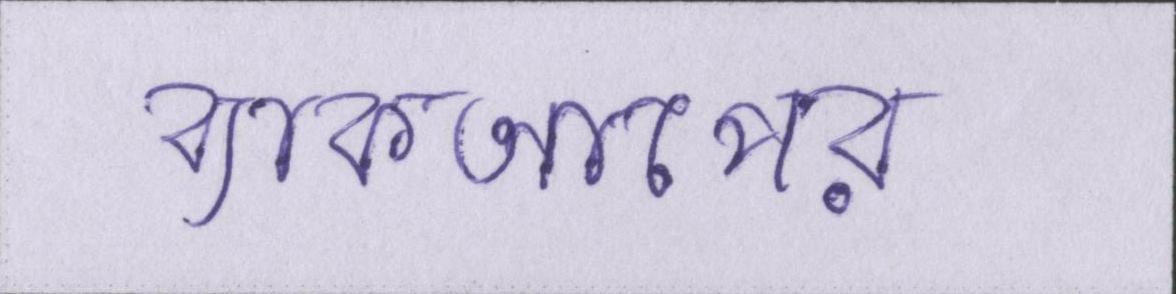 ব্যাকআপের